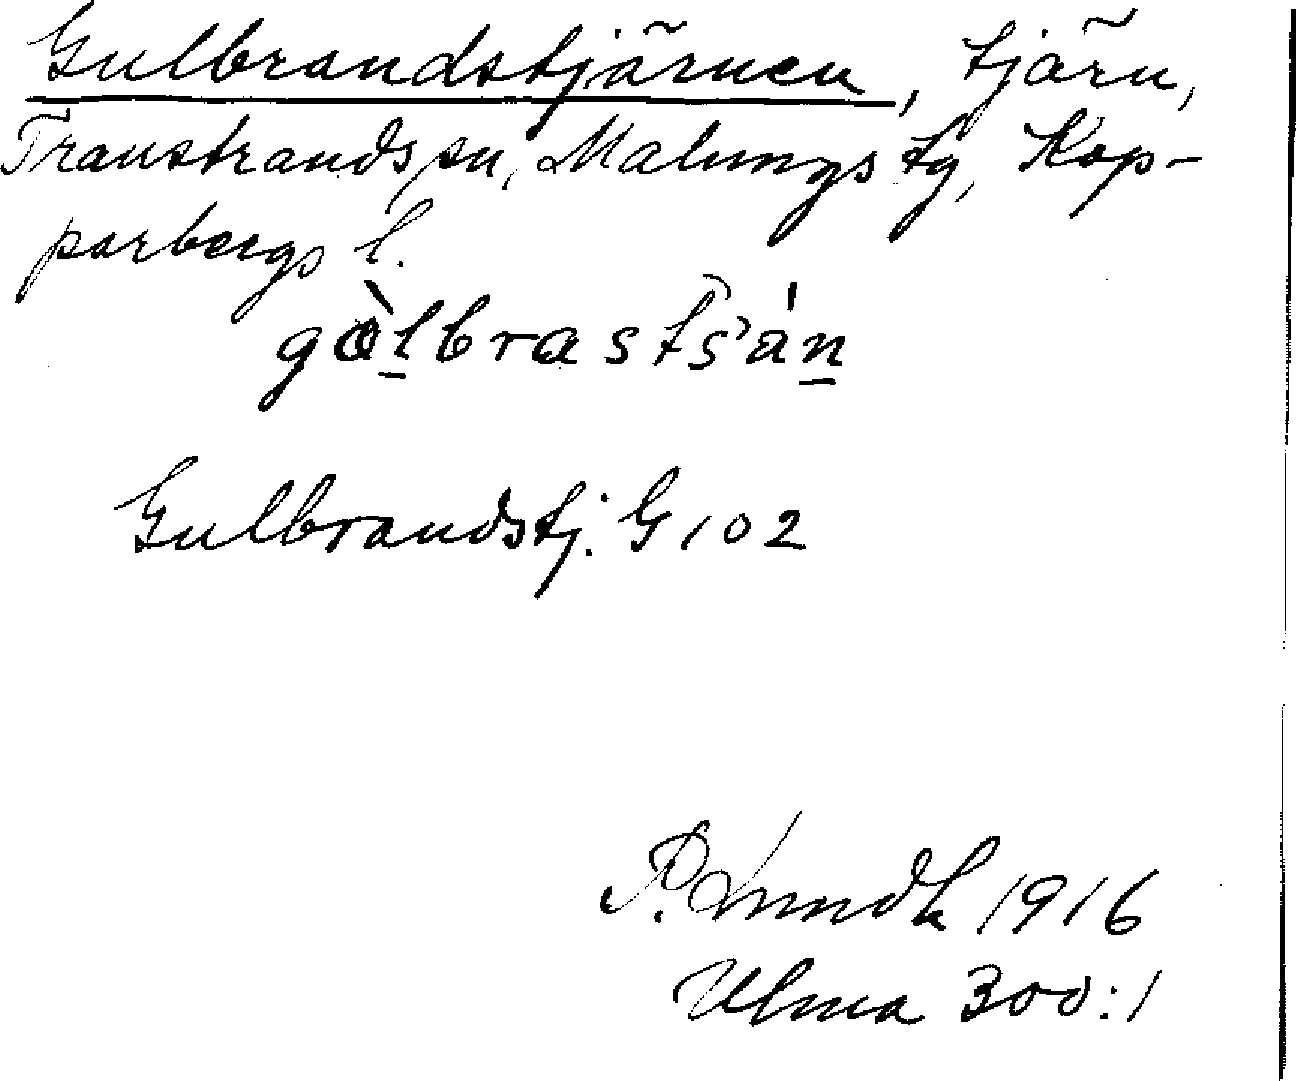 Gulbrandstjärnen, tjärn,
Transtrands sn, Malungs tg, Kop-
parbergs l.
gòlbrastšán
Gulbrandstj. G 102
P. Lindh 1916
Ulma 300:1